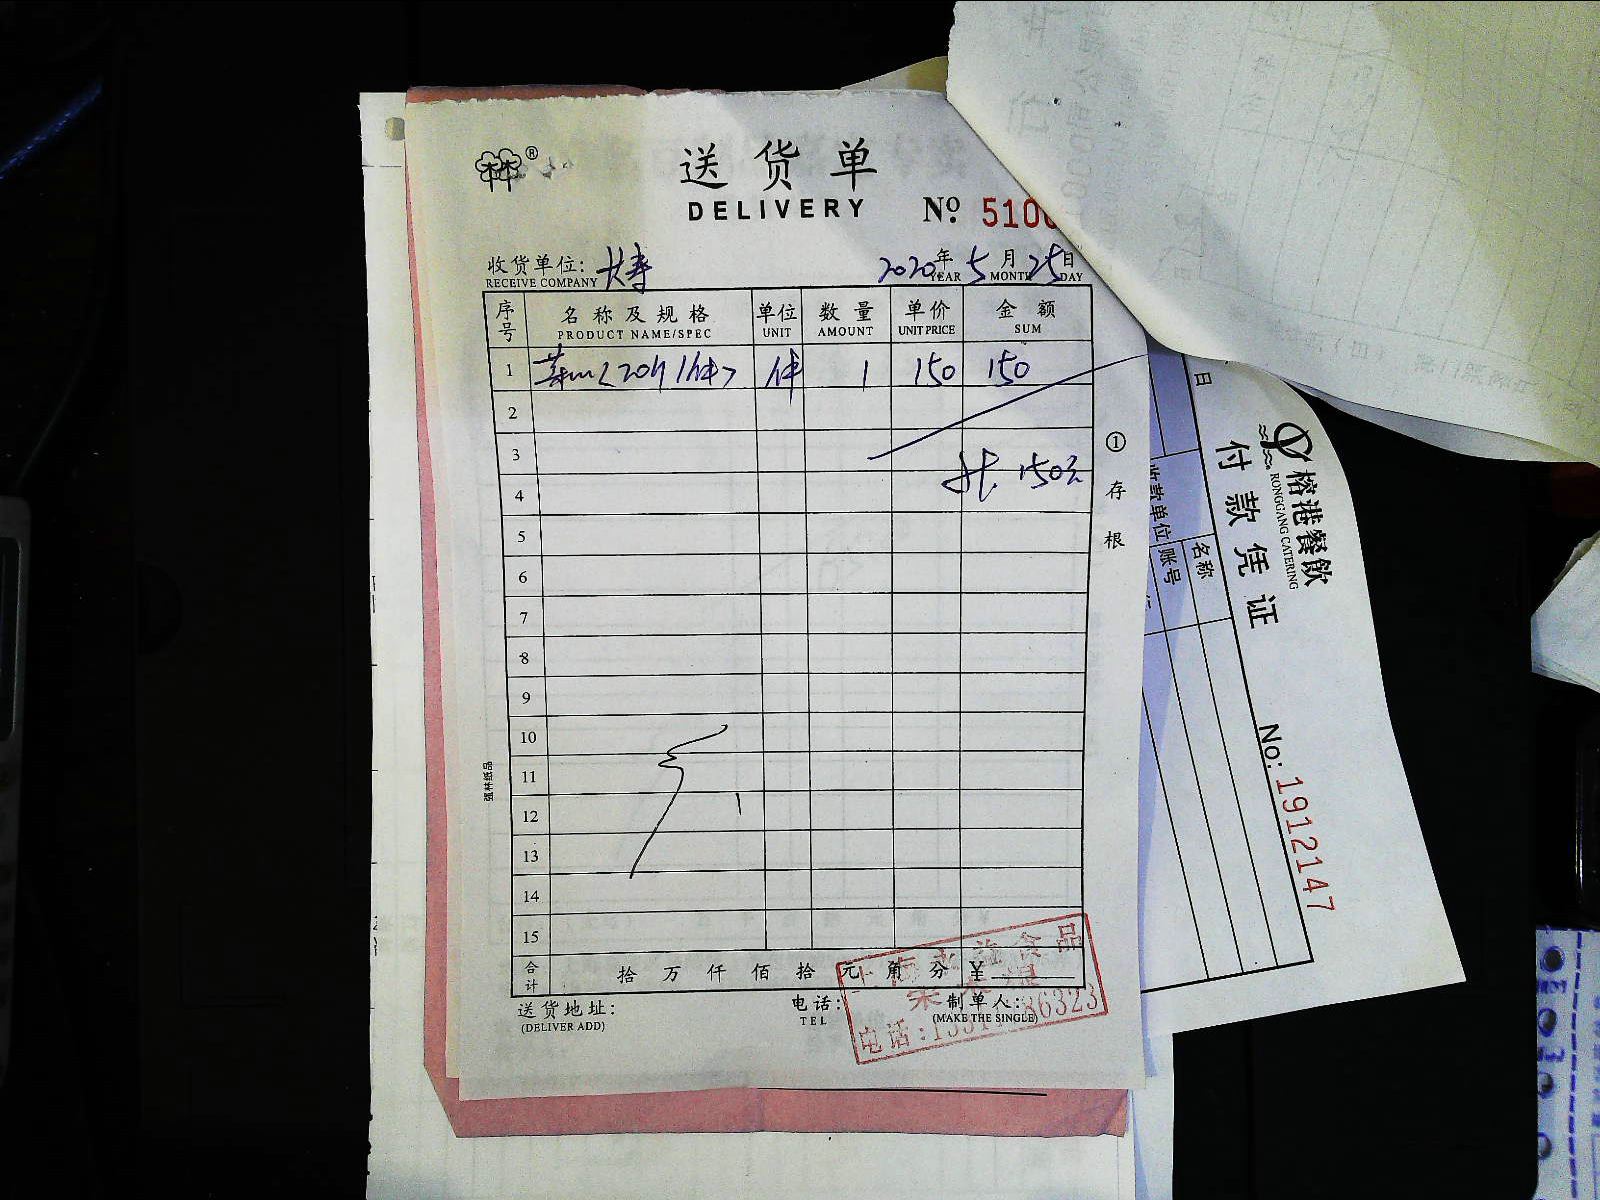 ®
送货单
DELIVERY
№ 510
收货单位: 长寿
RECEIVE COMPANY
2020年 5月 25日
YEAR MONTH DAY
序号 名称及规格 单位 数量 单价 金额
PRODUCT NAME/SPEC UNIT AMOUNT UNIT PRICE SUM
1 件 1 150 150
2
3
共 150元
4
5
6
7
8
9
10
11
12
13
14
15
合计 拾 万 仟 佰 拾 元 角 分 ¥
送货地址:
(DELIVER ADD)
电话:
TEL
制单人:
(MAKE THE SINGLE)
① 存根
强林纸品
食品
电话:
榕港餐飲
RONGGANG CATERING
付款凭证
No: 1912147
日
收款单位
名称
账号